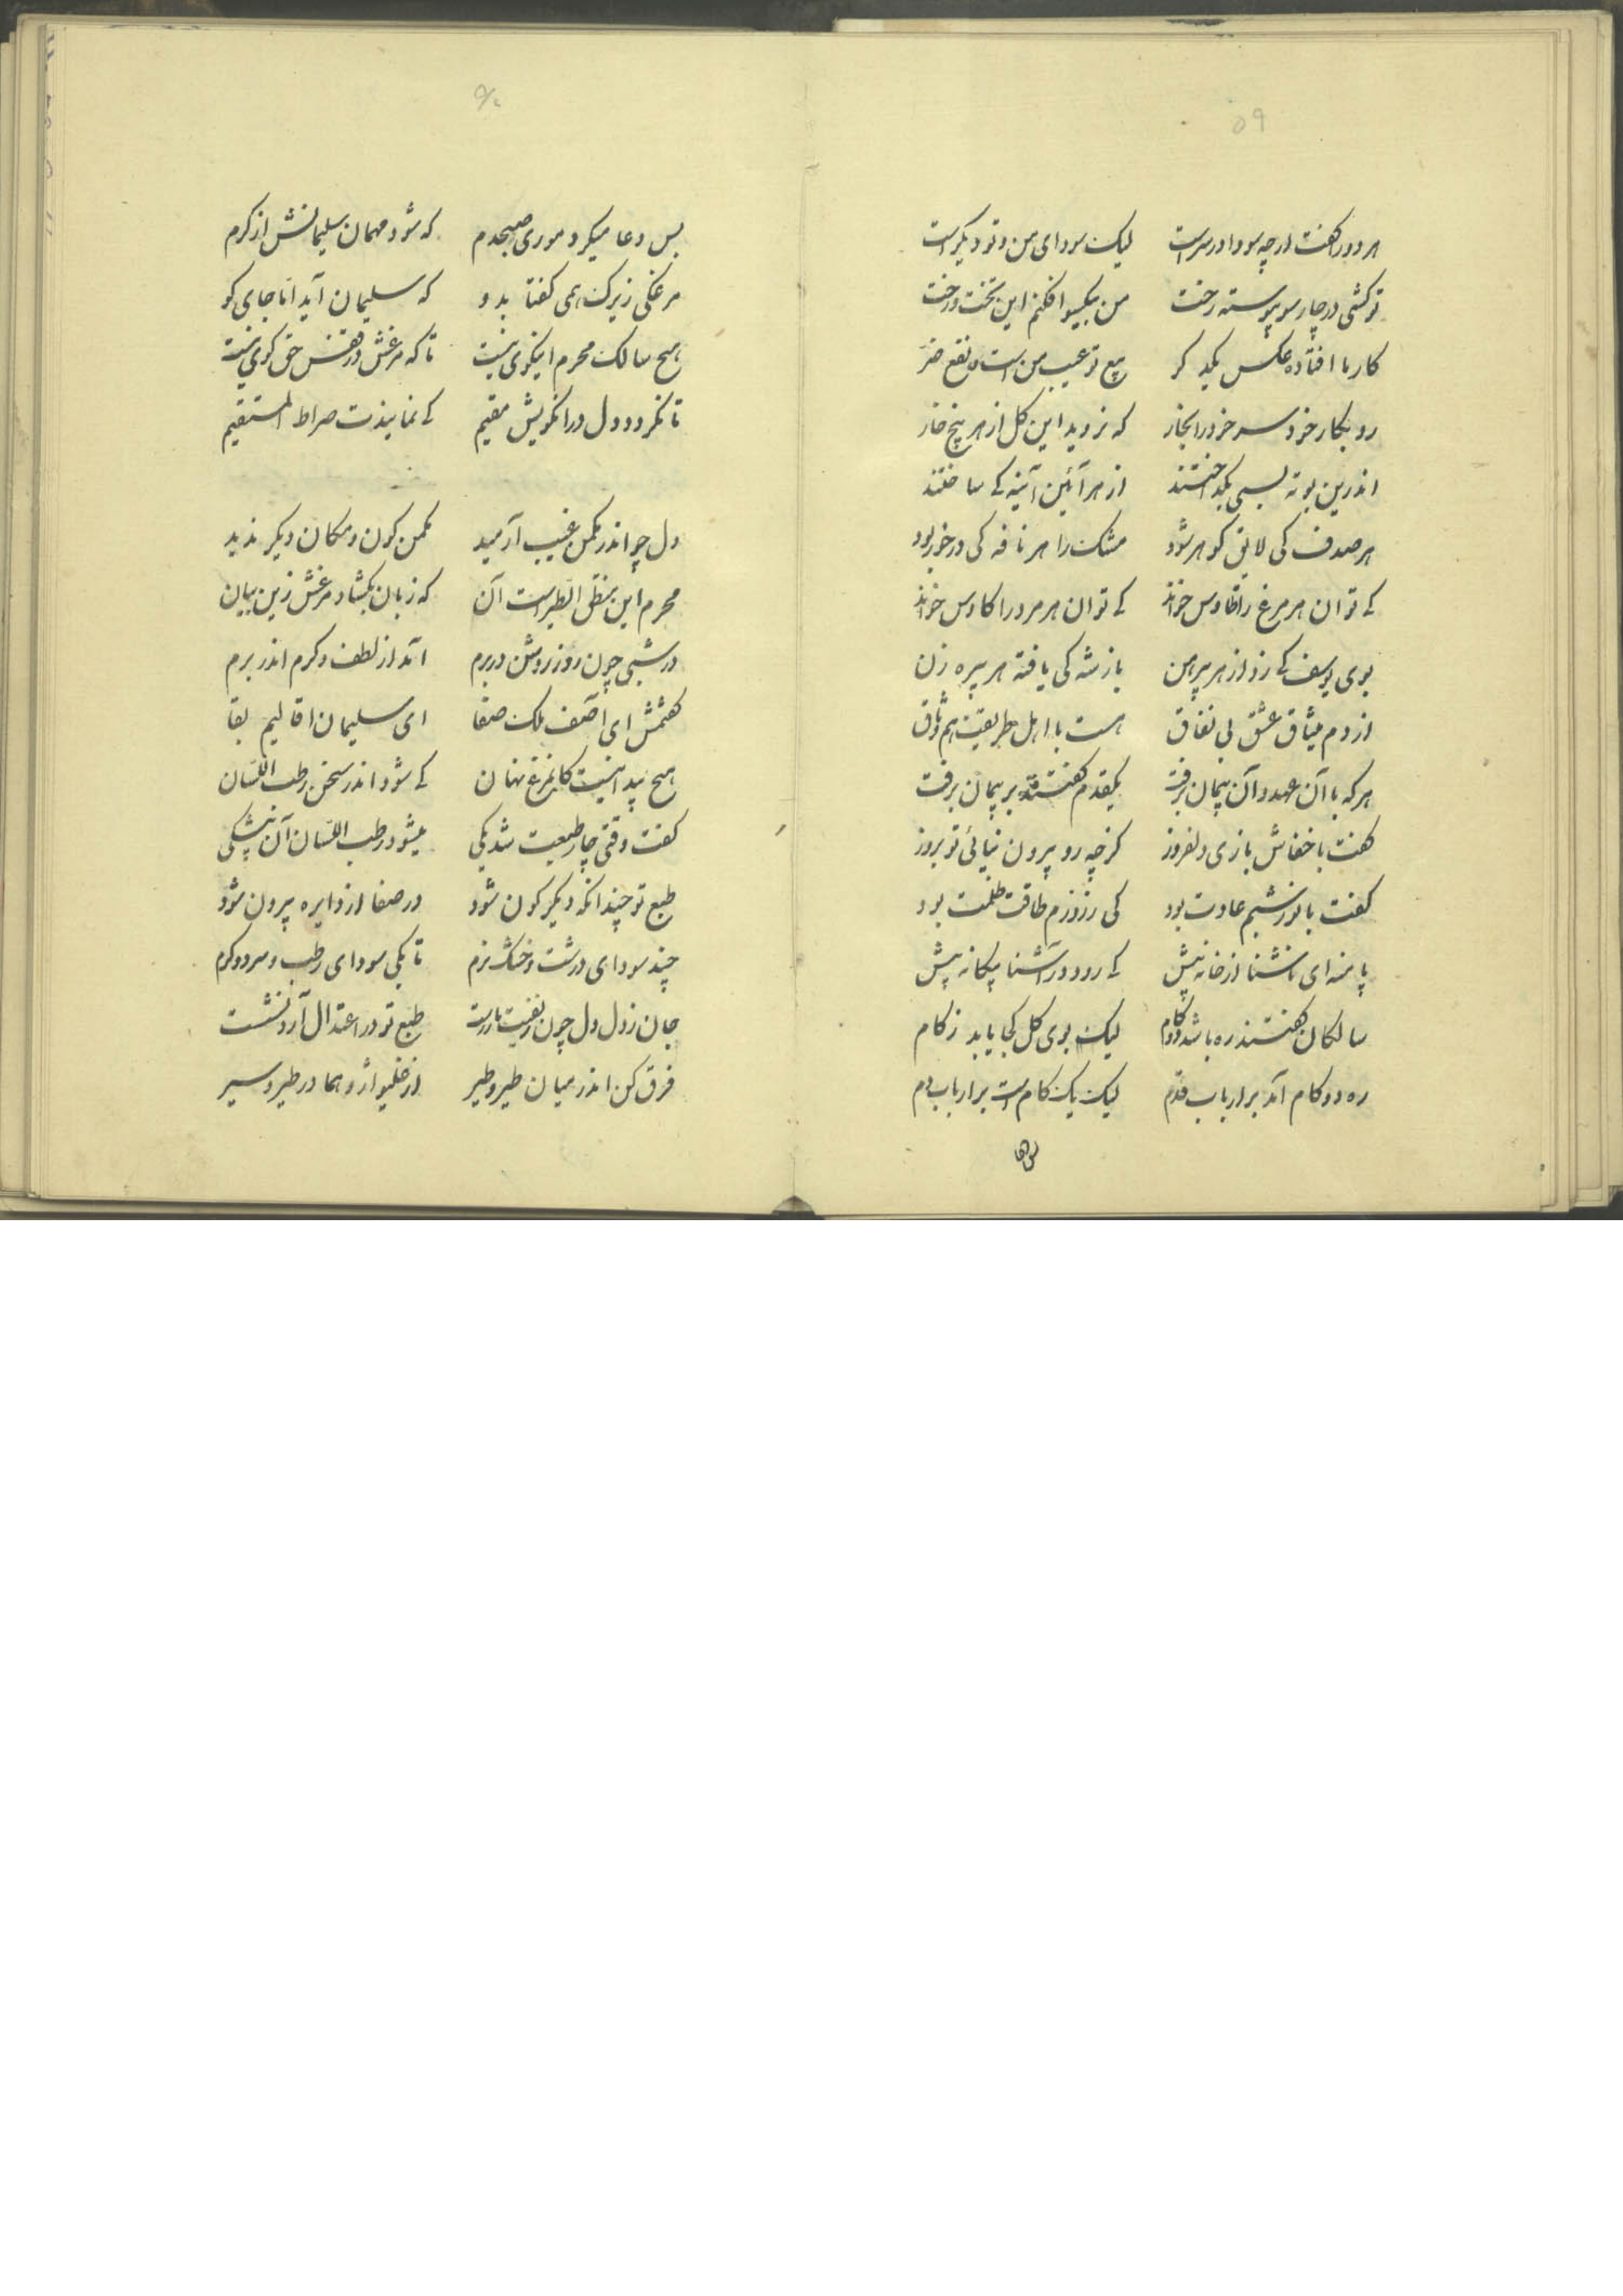 ۵۹
هر دو را گفت ارچه سودا در سر است لیک سودای من و تو دیگر است
تو کشی در چار سو پیوسته رخت من بیکسو افکنم این تخت و رخت
کار ما افتاده عکس یکدگر بیع تو عیب من است و نفع ضر
رو بکار خود سر خود را بخار که نروید این گل از هر بیخ خار
اندرین بوته بسی بگداختند از هر آئین آینه کے ساختند
هر صدف کی لایق گوهر شود مشک را هر نافه کی در خور بود
کے توان هر مرغ را طاوس خواند کے توان هر مرد را کاوس خواند
بوی یوسف کے زد از هر پیرهن باز شه کی یافته هر پیره زن
از دم میثاق عشق بی نفاق هست با اهل طریقت هم وثاق
هر که با آن عهد و آن پیمان برفت یکقدم گفتند بر پیمان برفت
گفت با خفاش بازی دلفروز گرچه رو بیرون نیائی تو بروز
گفت با نور شبم عادت بود کی ز روزم طاقت ظلمت بود
پا منه ای ناشنا از خانه پیش کے رود در آشنا بیگانه پیش
سالکان گفتند ره باشد دو گام لیک بوی گل کجا یابد زکام
ره دو گام آمد بر ارباب قدم لیک یک گام است بر ارباب دم
پس دعا
بس دعا میکرد موری صبحدم که شود مهمان سلیمانش از کرم
مرغکی زیرک همی گفتا بدو که سلیمان آید اما جای کو
هیچ سالک محرم اینکوی نیست تا که مرغش در قفس حق کوی نیست
تا نگردد دل در انکویش مقیم کے نمایندت صراط المستقیم
دل چو اندر مکمن غیب آرمید مکمن کون و مکان دیگر ندید
محرم این منطق الطیر است آن که زبان بگشاد مرغش زین بیان
در شبی چون روز روشن در برم آمد از لطف و کرم اندر برم
گفتمش ای آصف ملک صفا ای سلیمان اقالیم بقا
هیچ پیدا نیست کاینمرغ نهان کے شود اندر سخن رطب اللسان
گفت وقتی چار طبعیت شد یکی میشود رطب اللسان آن بیشکی
طبع تو چندانکه دیگر گون شود در صفا از دایره بیرون شود
چند سودای درشت و خشک نرم تا بکی سودای رطب و سرد و گرم
جان ز دل دل چون ز نفست باز رست طبع تو در اعتدال آرد نشست
فرق کن اندر میان طیر و طیر از غلیواژ و هما در طیر و سیر